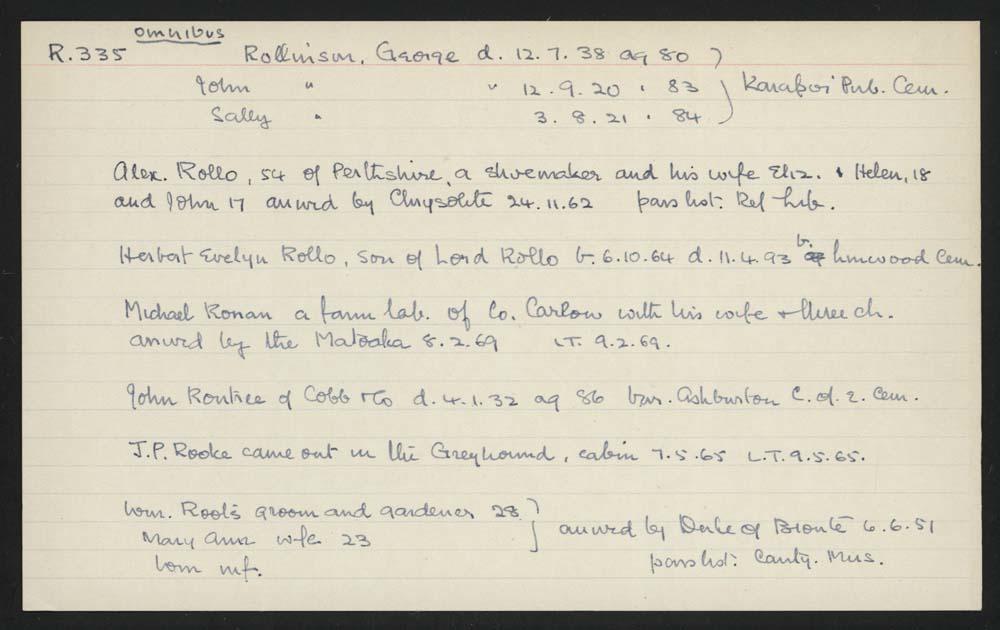 omnibus
R.335 Rollinson, George d. 12.7.38 ag 80 )
John " " 12.9.20 " 83 ) Kaiapoi Pub. Cem.
Sally " 3.8.21 " 84 )
Alex. Rollo, 54 of Perthshire, a shoemaker and his wife Eliz. & Helen, 18
and John 17 arrived by Chrysolite 24.11.62 pass list: Ref Lib.
Herbert Evelyn Rollo, son of Lord Rollo b. 6.10.64 d. 11.4.93 b. Linwood Cem.
Michael Ronan a farm lab. of Co. Carlow with his wife + three ch.
arrived by the Matoaka 8.2.69 LT. 9.2.69.
John Rontree of Cobb + Co d. 4.1.32 ag 86 bur. Ashburton C. of E. Cem.
J.P. Rooke came out in the Greyhound, cabin 7.5.65 L.T. 9.5.65.
Wm. Roots groom and gardener 28 }
Mary Ann wife 23 } arrived by Duke of Bronte 6.6.51
Wm inf. pass list: Canty. Mus.